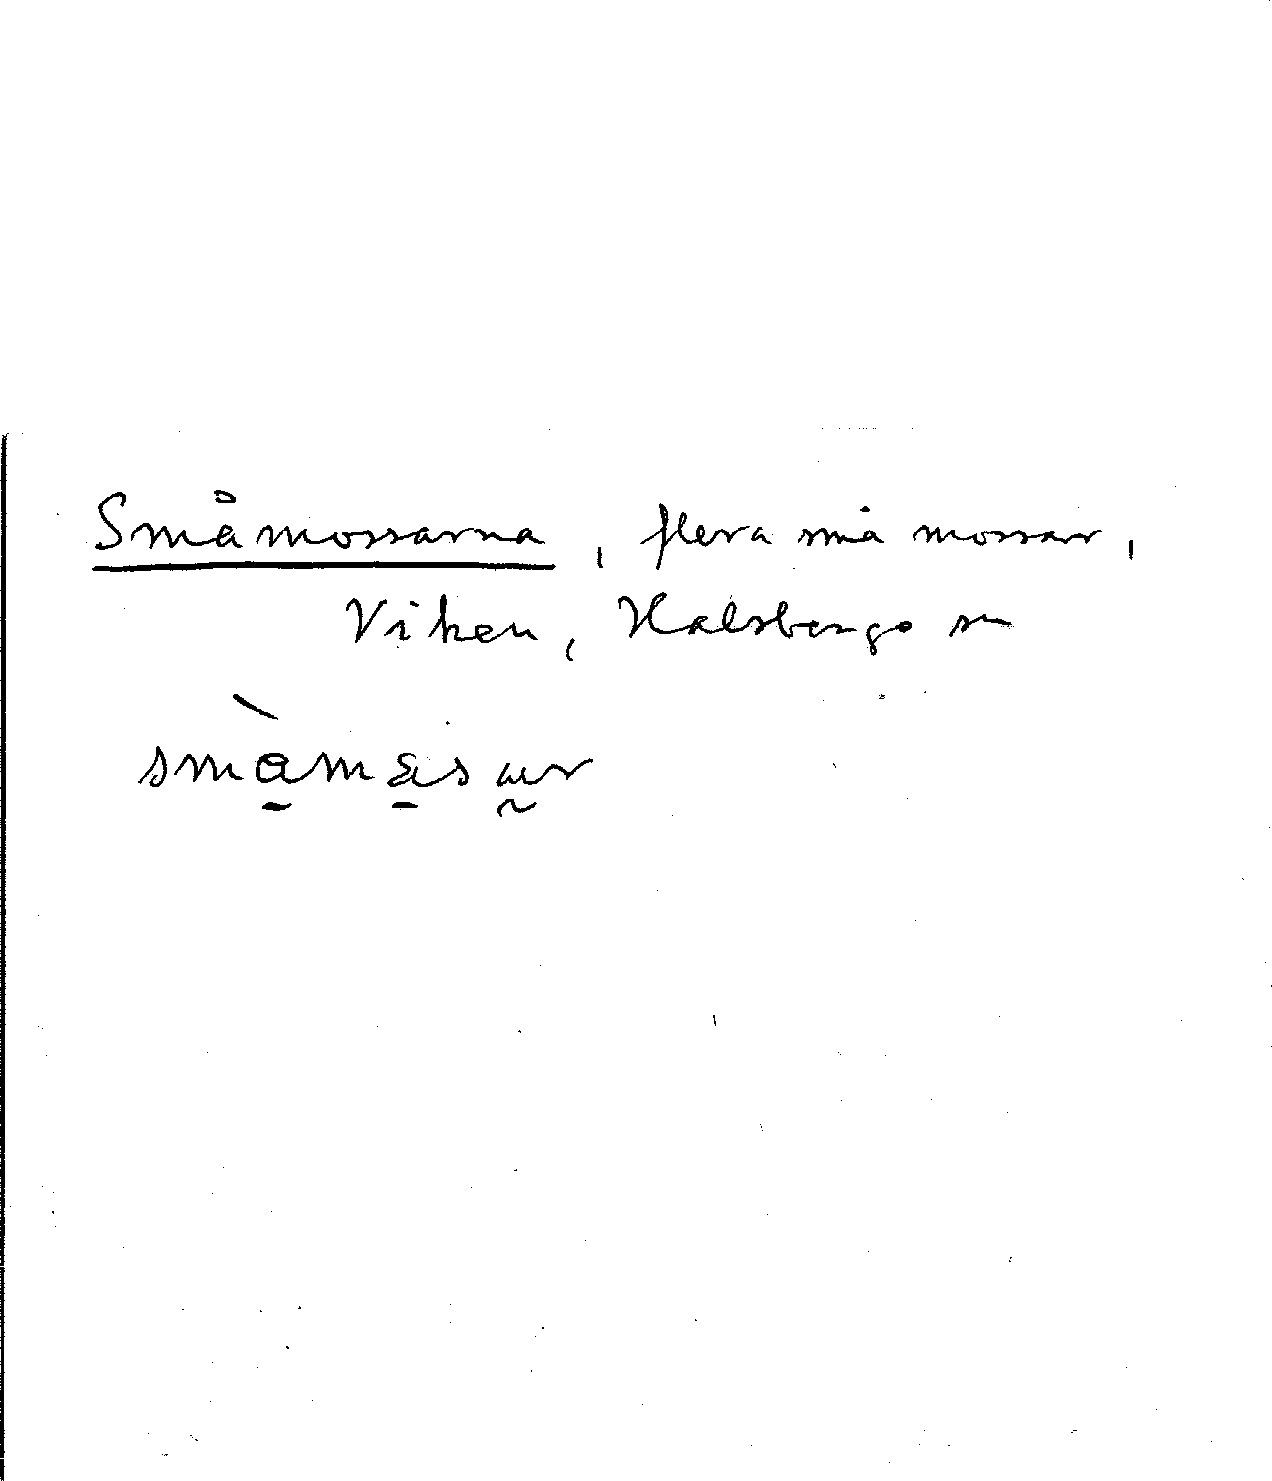 Småmossarna, flera små mossar,
Viken, Halsbergs sn